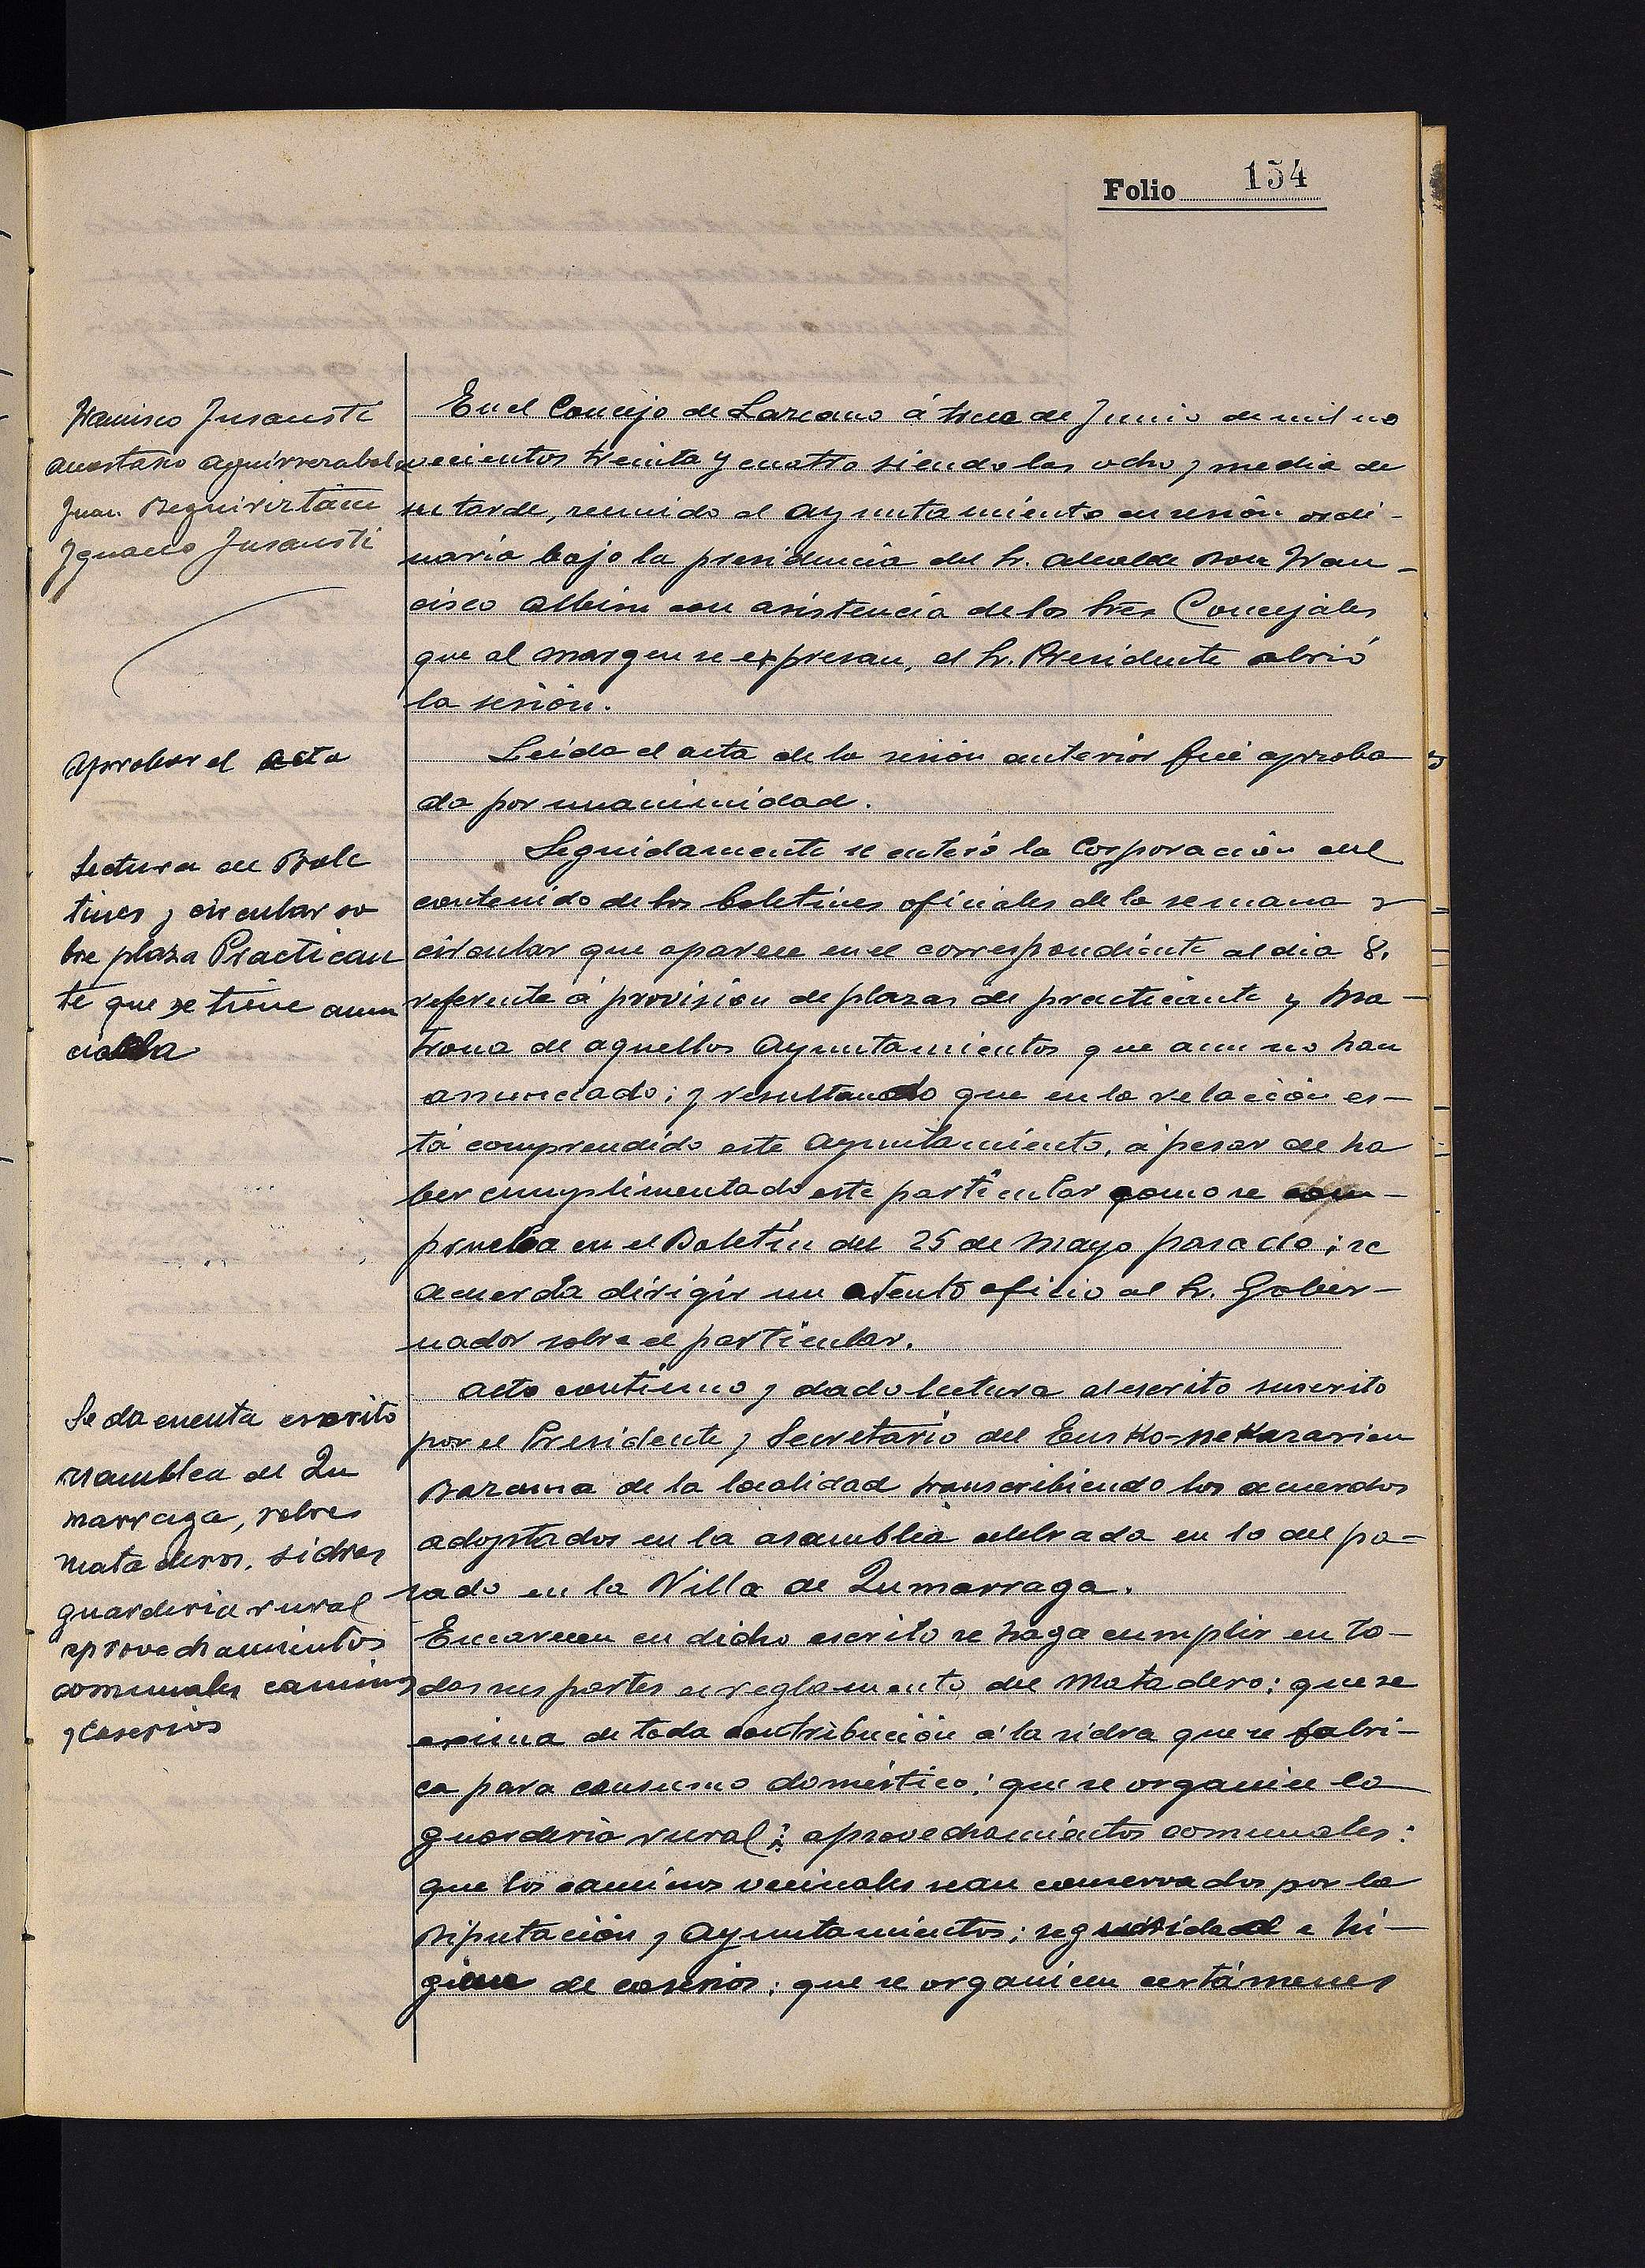 Folio 154
Francisco Insausti
Anastasio Aguirrezabala
Juan Beguiristain
Ygnacio Insausti
En el Concejo de Lazcano á trece de Junio de mil no
vecientos treinta y cuatro siendo las ocho y media de
su tarde, reunido el Ayuntamiento en sesión ordi-
naria bajo la presidencia del Sr. Alcalde Don Fran-
cisco Albisu con asistencia de los Sres Concejales
que al margen se expresan, el Sr. Presidente abrió
la sesión.
Aprobar el acta
Leida el acta de la sesión anterior fué aproba
da por unanimidad.
Lectura de Bole
tines y circular so
bre plaza Practican
te que se tiene anun
ciada
Seguidamente se enteró la Corporación del
contenido de los boletines oficiales de la semana y
circular que aparece en el correspondiente al dia 8.
referente á provisión de plazas de practicante y Ma-
trona de aquellos Ayuntamientos que aun no han
anunciado; y resultando que en la relación es-
tá comprendido este Ayuntamiento, á pesar de ha
ber cumplimentado este particular como se com-
prueba en el Boletín del 25 de Mayo pasado; se
acuerda dirigir un atento oficio al Sr. Gober-
nador sobre el particular.
Se da cuenta escrito
asamblea de Zu
marraga, sobres
mataderos, sidras
guarderia rural
aprovechamientos
comunales caminos
y Caserios
Acto contínuo y dado lectura al escrito suscrito
por el Presidente y Secretario del Eusko-nekazarien
Bazcuna de la localidad transcribiendo los acuerdos
adoptados en la asamblea celebrada en 10 del pa-
sado en la Villa de Zumarraga.
Encarecen en dicho escrito se haga cumplir en to-
das sus partes el reglamento del Matadero: que se
exima de toda contribución á la sidra que se fabri-
ca para consumo doméstico; que se organice la
guarderia rural; aprovechamientos comunales:
que los caminos vecinales sean conservados por la
Diputación y Ayuntamientos; seguridad e hi-
giene de caserios; que se organicen certámenes